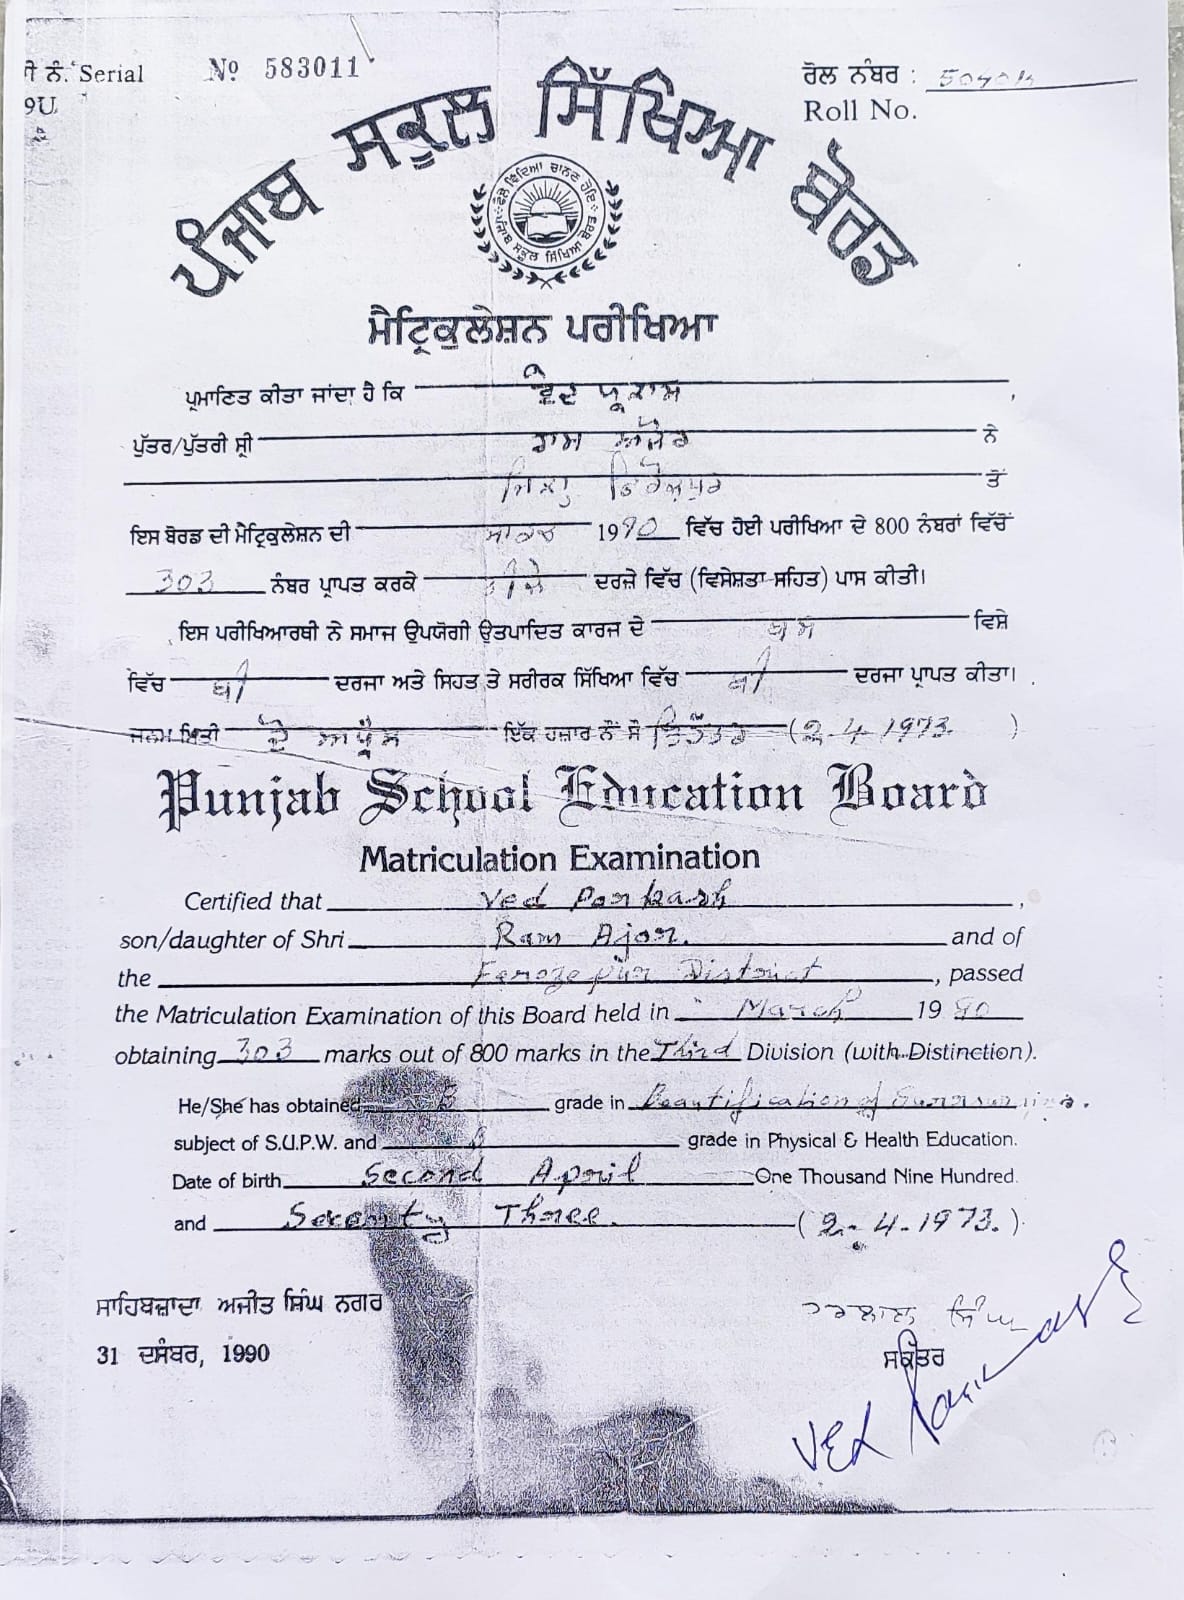 ੀ ਨੰ. Serial № 583011
9U
ਰੋਲ ਨੰਬਰ :
Roll No.
ਪੰਜਾਬ ਸਕੂਲ ਸਿੱਖਿਆ ਬੋਰਡ
ਮੈਟ੍ਰਿਕੁਲੇਸ਼ਨ ਪਰੀਖਿਆ
ਪ੍ਰਮਾਣਿਤ ਕੀਤਾ ਜਾਂਦਾ ਹੈ ਕਿ ਵੇਦ ਪ੍ਰਕਾਸ਼ ,
ਪੁੱਤਰ/ਪੁੱਤਰੀ ਸ਼੍ਰੀ ਰਾਮ ਅਜੋਰ ਨੇ
ਜਿਲ੍ਹਾ ਫਿਰੋਜ਼ਪੁਰ ਤੋਂ
ਇਸ ਬੋਰਡ ਦੀ ਮੈਟ੍ਰਿਕੁਲੇਸ਼ਨ ਦੀ ਮਾਰਚ 1990 ਵਿੱਚ ਹੋਈ ਪਰੀਖਿਆ ਦੇ 800 ਨੰਬਰਾਂ ਵਿੱਚੋਂ
303 ਨੰਬਰ ਪ੍ਰਾਪਤ ਕਰਕੇ ਤੀਜੇ ਦਰਜ਼ੇ ਵਿੱਚ (ਵਿਸੇਸ਼ਤਾ ਸਹਿਤ) ਪਾਸ ਕੀਤੀ।
ਇਸ ਪਰੀਖਿਆਰਥੀ ਨੇ ਸਮਾਜ ਉਪਯੋਗੀ ਉਤਪਾਦਿਤ ਕਾਰਜ ਦੇ ਵਿਸ਼ੇ
ਵਿੱਚ ਬੀ ਦਰਜਾ ਅਤੇ ਸਿਹਤ ਤੇ ਸਰੀਰਕ ਸਿੱਖਿਆ ਵਿੱਚ ਬੀ ਦਰਜਾ ਪ੍ਰਾਪਤ ਕੀਤਾ।
ਜਨਮ ਮਿਤੀ ਦੋ ਅਪ੍ਰੈਲ ਇੱਕ ਹਜ਼ਾਰ ਨੌਂ ਸੌ ਤਿਹੱਤਰ (2-4-1973. )
Punjab School Education Board
Matriculation Examination
Certified that Ved Parkash ,
son/daughter of Shri Ram Ajor. and of
the Ferozepur District , passed
the Matriculation Examination of this Board held in March 1990
obtaining 303 marks out of 800 marks in the Third Division (with Distinction).
He/She has obtained B grade in Beautification of
subject of S.U.P.W. and B grade in Physical & Health Education.
Date of birth Second April One Thousand Nine Hundred.
and Seventy Three. (2-4-1973.)
ਸਾਹਿਬਜ਼ਾਦਾ ਅਜੀਤ ਸਿੰਘ ਨਗਰ
31 ਦਸੰਬਰ, 1990
ਹਰਲਾਲ ਸਿੰਘ
ਸਕੱਤਰ
VED